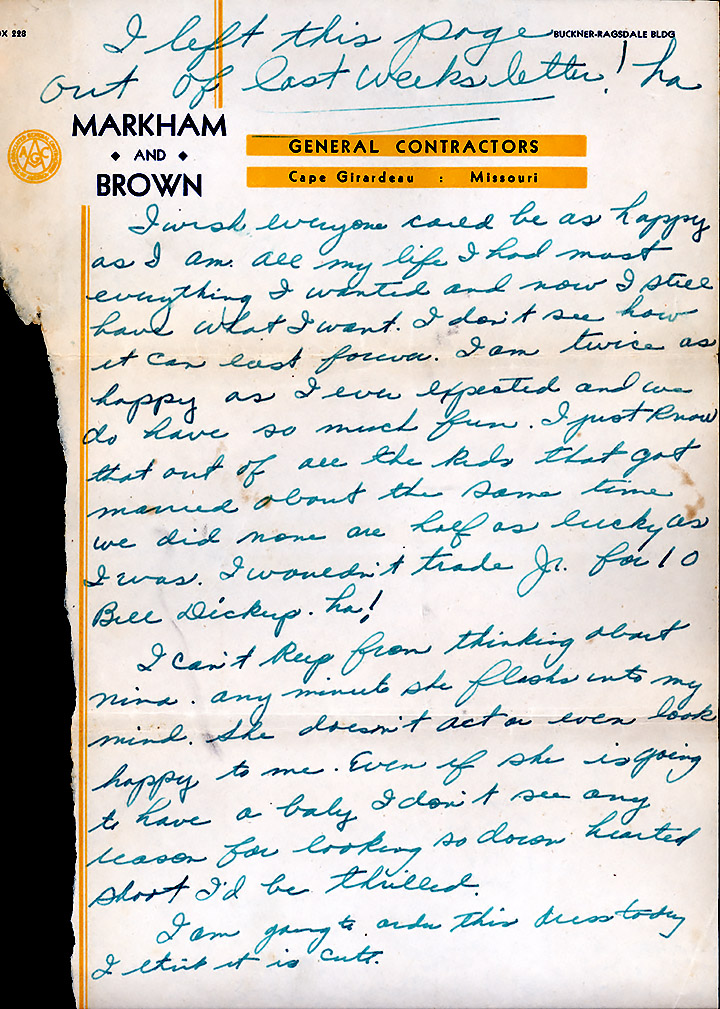 OX 228
BUCKNER-RAGSDALE BLDG
I left this page
out of last weeks letter! ha
MARKHAM
AND
BROWN
GENERAL CONTRACTORS
Cape Girardeau : Missouri
I wish everyone could be as happy
as I am. All my life I had most
everything I wanted and now I still
have what I want. I don't see how
it can last forever. I am twice as
happy as I ever expected and we
do have so much fun. I just know
that out of all the kids that got
married about the same time
we did none are half as lucky as
I was. I wouldn't trade Jr. for 10
Bill. ha!
I can't keep from thinking about
nina. any minute she flashs into my
mind. She doesn't act or even look
happy to me. Even if she is going
to have a baby I don't see any
reason for looking so down hearted
shoot I'd be thrilled.
I am going to order this dress today
I think it is cute.